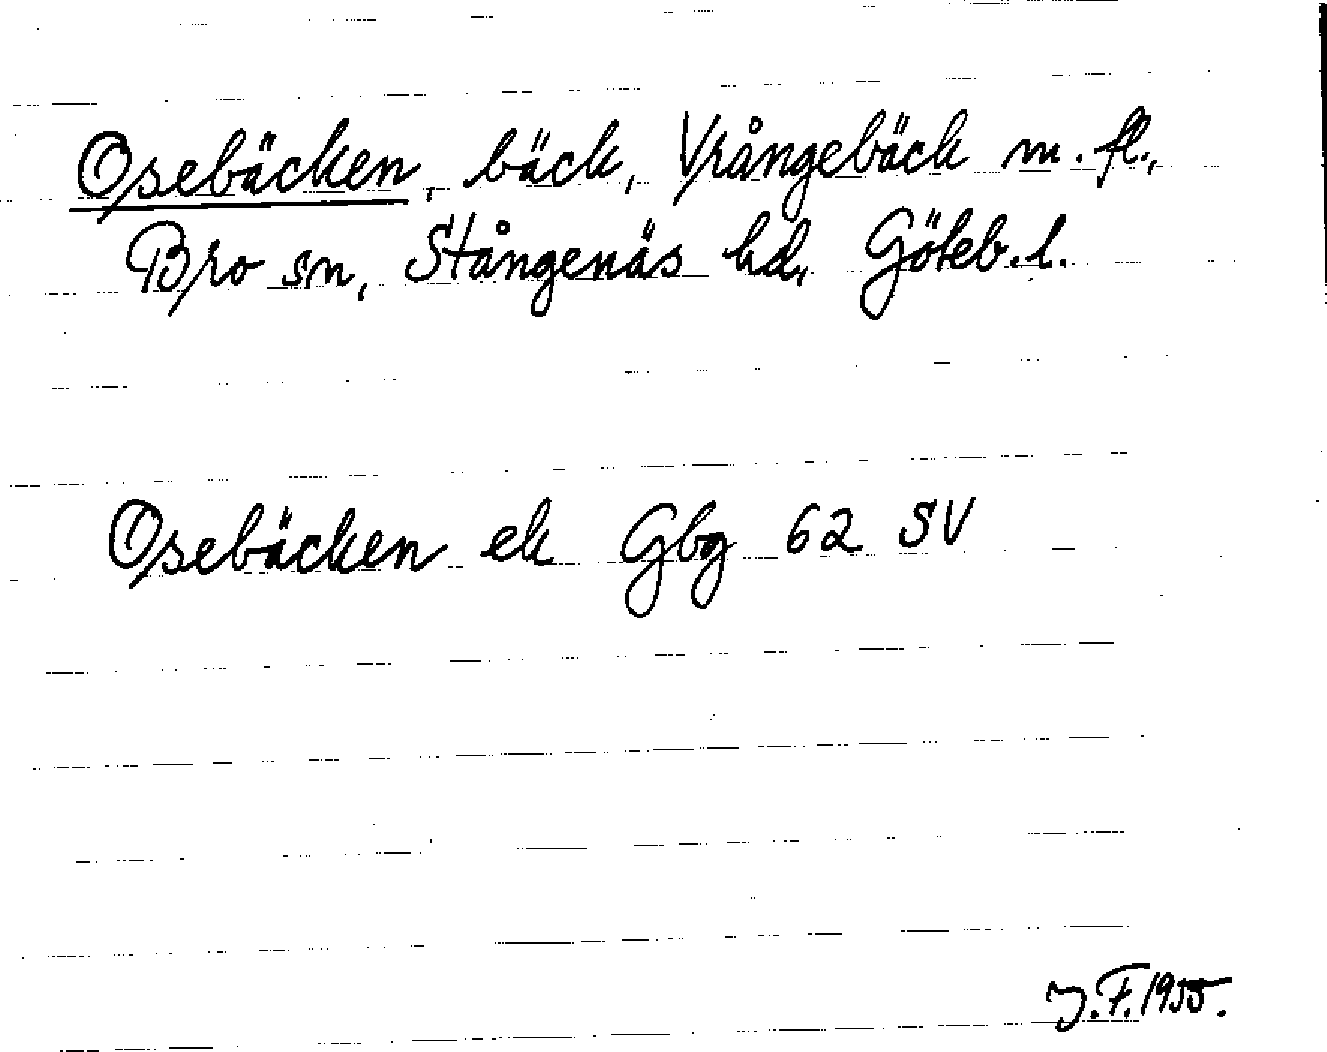 Osebäcken, bäck, Vrångebäck m. fl.,
Bro sn, Stångenäs hd, Göteb. l.
Osebäcken ek Gbg 62 SV
J. F. 1955.